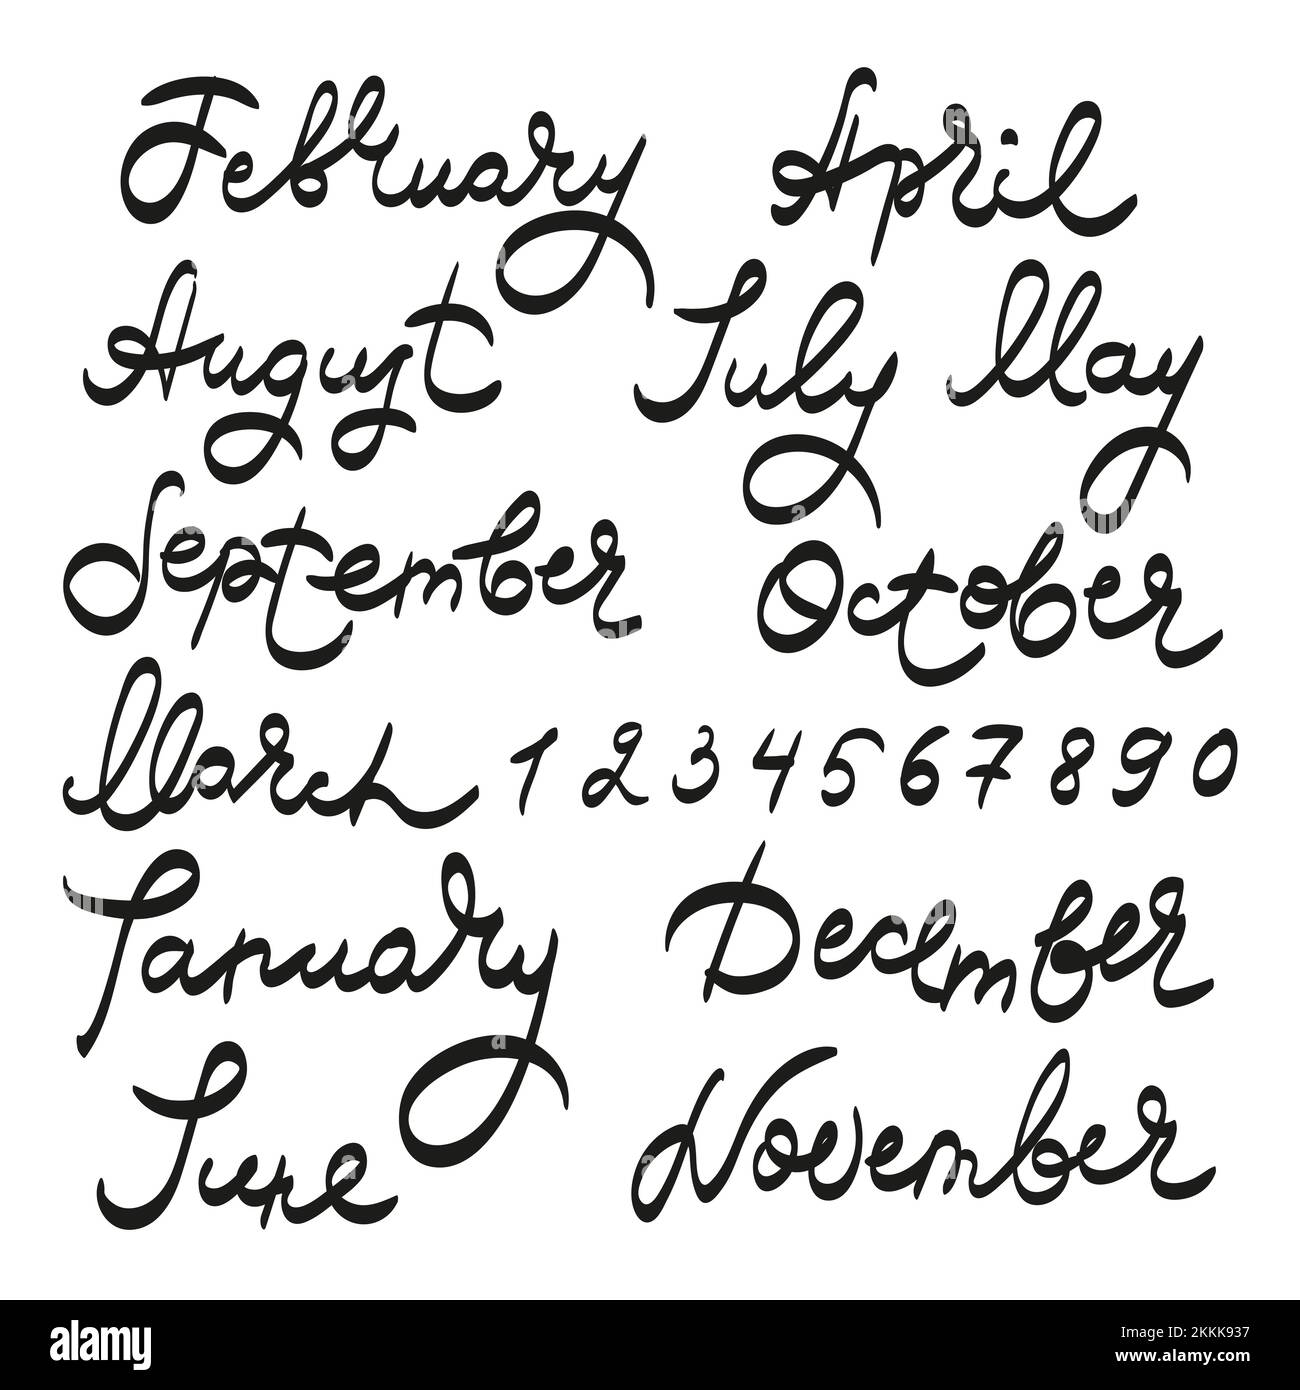 February April
August July May
September October
March 1 2 3 4 5 6 7 8 9 0
January December
June November
alamy
Image ID: 2KKK937
www.alamy.com